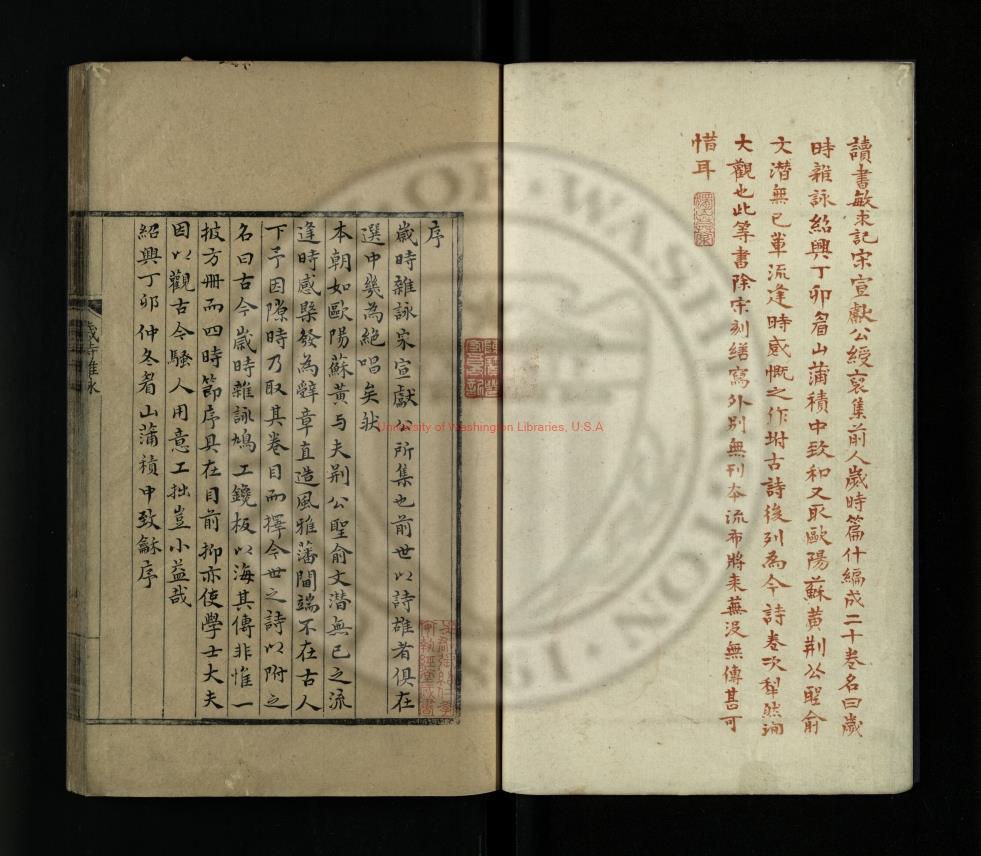 讀書敏求記宋宣獻公綬裒集前人歲時篇什編成二十卷名曰歲
時雜詠紹興丁卯眉山蒲積中致和又取歐陽蘇黃荆公聖俞
文潛無已輩流逢時感慨之作坿古詩後列為今詩卷次犁然洵
大觀也此等書除宋刻繕寫外别無刊本流布將來蕪没無傳甚可
惜耳
序
歲時雜詠宋宣獻公所集也前世以詩雄者俱在
選中幾為絶唱矣狀
本朝如歐陽蘇黃与夫荆公聖俞文潛無已之流
逢時感槩發為辭章直造風雅藩閫端不在古人
下予因隙時乃取其卷目而擇今世之詩以附之
名曰古今歲時雜詠鳩工鑱板以海其傳非惟一
披方册而四時節序具在目前抑亦使學士大夫
因以觀古今騷人用意工拙豈小益哉
紹興丁卯仲冬眷山蒲積中致龢序
歲時雜詠
University of Washington Libraries, U.S.A